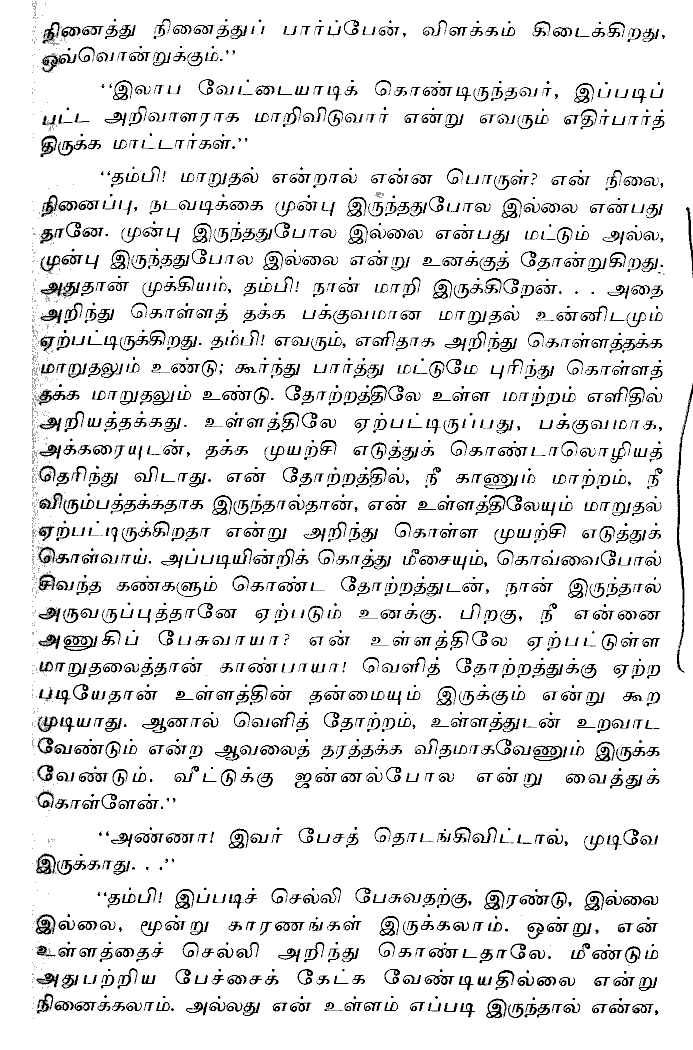 நினைத்து நினைத்துப் பார்ப்பேன், விளக்கம் கிடைக்கிறது,
ஒவ்வொன்றுக்கும்.''
''இலாப வேட்டையாடிக் கொண்டிருந்தவர், இப்படிப்
பட்ட அறிவாளராக மாறிவிடுவார் என்று எவரும் எதிர்பார்த்
திருக்க மாட்டார்கள்.''
''தம்பி! மாறுதல் என்றால் என்ன பொருள்? என் நிலை,
நினைப்பு, நடவடிக்கை முன்பு இருந்ததுபோல இல்லை என்பது
தானே. முன்பு இருந்ததுபோல இல்லை என்பது மட்டும் அல்ல,
முன்பு இருந்ததுபோல இல்லை என்று உனக்குத் தோன்றுகிறது.
அதுதான் முக்கியம், தம்பி! நான் மாறி இருக்கிறேன். . . அதை
அறிந்து கொள்ளத் தக்க பக்குவமான மாறுதல் உன்னிடமும்
ஏற்பட்டிருக்கிறது. தம்பி! எவரும், எளிதாக அறிந்து கொள்ளத்தக்க
மாறுதலும் உண்டு; கூர்ந்து பார்த்து மட்டுமே புரிந்து கொள்ளத்
தக்க மாறுதலும் உண்டு. தோற்றத்திலே உள்ள மாற்றம் எளிதில்
அறியத்தக்கது. உள்ளத்திலே ஏற்பட்டிருப்பது, பக்குவமாக,
அக்கரையுடன், தக்க முயற்சி எடுத்துக் கொண்டாலொழியத்
தெரிந்து விடாது. என் தோற்றத்தில், நீ காணும் மாற்றம், நீ
விரும்பத்தக்கதாக இருந்தால்தான், என் உள்ளத்திலேயும் மாறுதல்
ஏற்பட்டிருக்கிறதா என்று அறிந்து கொள்ள முயற்சி எடுத்துக்
கொள்வாய். அப்படியின்றிக் கொத்து மீசையும், கொவ்வைபோல்
சிவந்த கண்களும் கொண்ட தோற்றத்துடன், நான் இருந்தால்
அருவருப்புத்தானே ஏற்படும் உனக்கு. பிறகு, நீ என்னை
அணுகிப் பேசுவாயா? என் உள்ளத்திலே ஏற்பட்டுள்ள
மாறுதலைத்தான் காண்பாயா! வெளித் தோற்றத்துக்கு ஏற்ற
படியேதான் உள்ளத்தின் தன்மையும் இருக்கும் என்று கூற
முடியாது. ஆனால் வெளித் தோற்றம், உள்ளத்துடன் உறவாட
வேண்டும் என்ற ஆவலைத் தரத்தக்க விதமாகவேணும் இருக்க
வேண்டும். வீட்டுக்கு ஜன்னல்போல என்று வைத்துக்
கொள்ளேன்.''
''அண்ணா! இவர் பேசத் தொடங்கிவிட்டால், முடிவே
இருக்காது. . .''
''தம்பி! இப்படிச் செல்லி பேசுவதற்கு, இரண்டு, இல்லை
இல்லை, மூன்று காரணங்கள் இருக்கலாம். ஒன்று, என்
உள்ளத்தைச் செல்லி அறிந்து கொண்டதாலே. மீண்டும்
அதுபற்றிய பேச்சைக் கேட்க வேண்டியதில்லை என்று
நினைக்கலாம். அல்லது என் உள்ளம் எப்படி இருந்தால் என்ன,